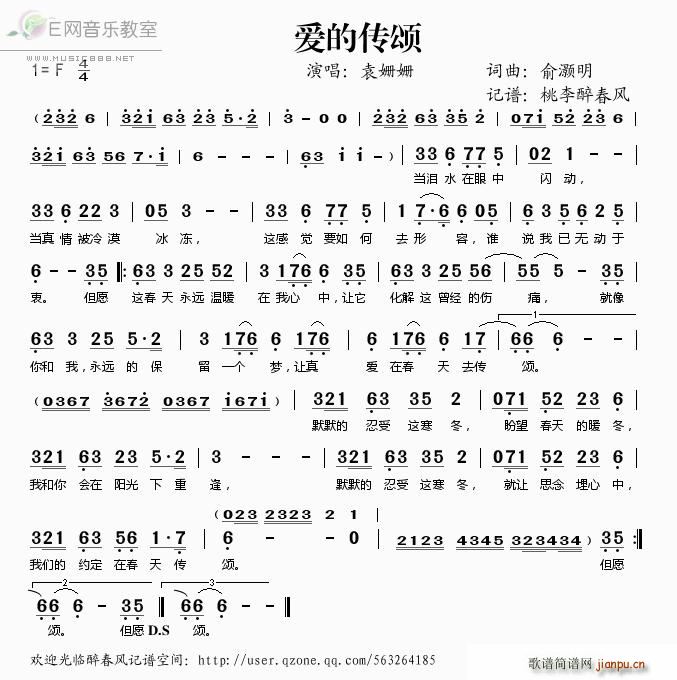 E网音乐教室
www.music888.net
爱的传颂
1=F 4/4
演唱：袁姗姗
词曲：俞灏明
记谱：桃李醉春风
(2̇3̇2̇ 6 | 3̇2̇i 63 23 5·2 | 3-00 | 232 63 35 2 | 07i 52 23 6 |
32i 63 56 7·i | 6-- | 63 i i-) | 33 6 77 5 | 02 1-- |
当泪 水在眼中 闪 动，
33 6 22 3 | 05 3-- | 33 6 77 5 | 1 7·6 6 05 | 6 35 6 2 5 |
当真 情 被冷 漠 冰 冻， 这感 觉 要如 何 去 形 容，谁 说 我已 无 动 于
6--35 |: 63 3 25 25 | 3 176 6 35 | 63 25 56 | 55 5-35 |
衷。 但愿 这春 天 永远 温暖 在 我心 中，让它 化解 这 曾经 的伤 痛， 就像
1
63 3 25 5·2 | 3 176 6 35 | 63 176 6 17 | 66 6-- |
你和 我，永远 的 保 留 一个 梦，让真 爱 在春 天 去传 颂。
(0367 3672 0367 i67i) | 321 63 35 2 | 071 52 23 6 |
默默的 忍受 这寒 冬， 盼望 春天 的暖 冬，
321 63 23 5·2 | 3--- | 321 63 35 2 | 071 52 23 6 |
我和你 会在 阳光 下 重 逢， 默默的 忍受 这寒 冬， 就让 思念 埋心 中，
(023 2323 2 1 |
321 63 56 1·7 | 6--0 | 2123 4345 323434) 35 :|
我们的 约定 在春 天 传 颂。 但愿
2 3
66 6-35 :| 66 6--||
颂。 但愿 D.S 颂。
欢迎光临醉春风记谱空间：http://user.qzone.qq.com/563264185
歌谱简谱网
jianpu.cn